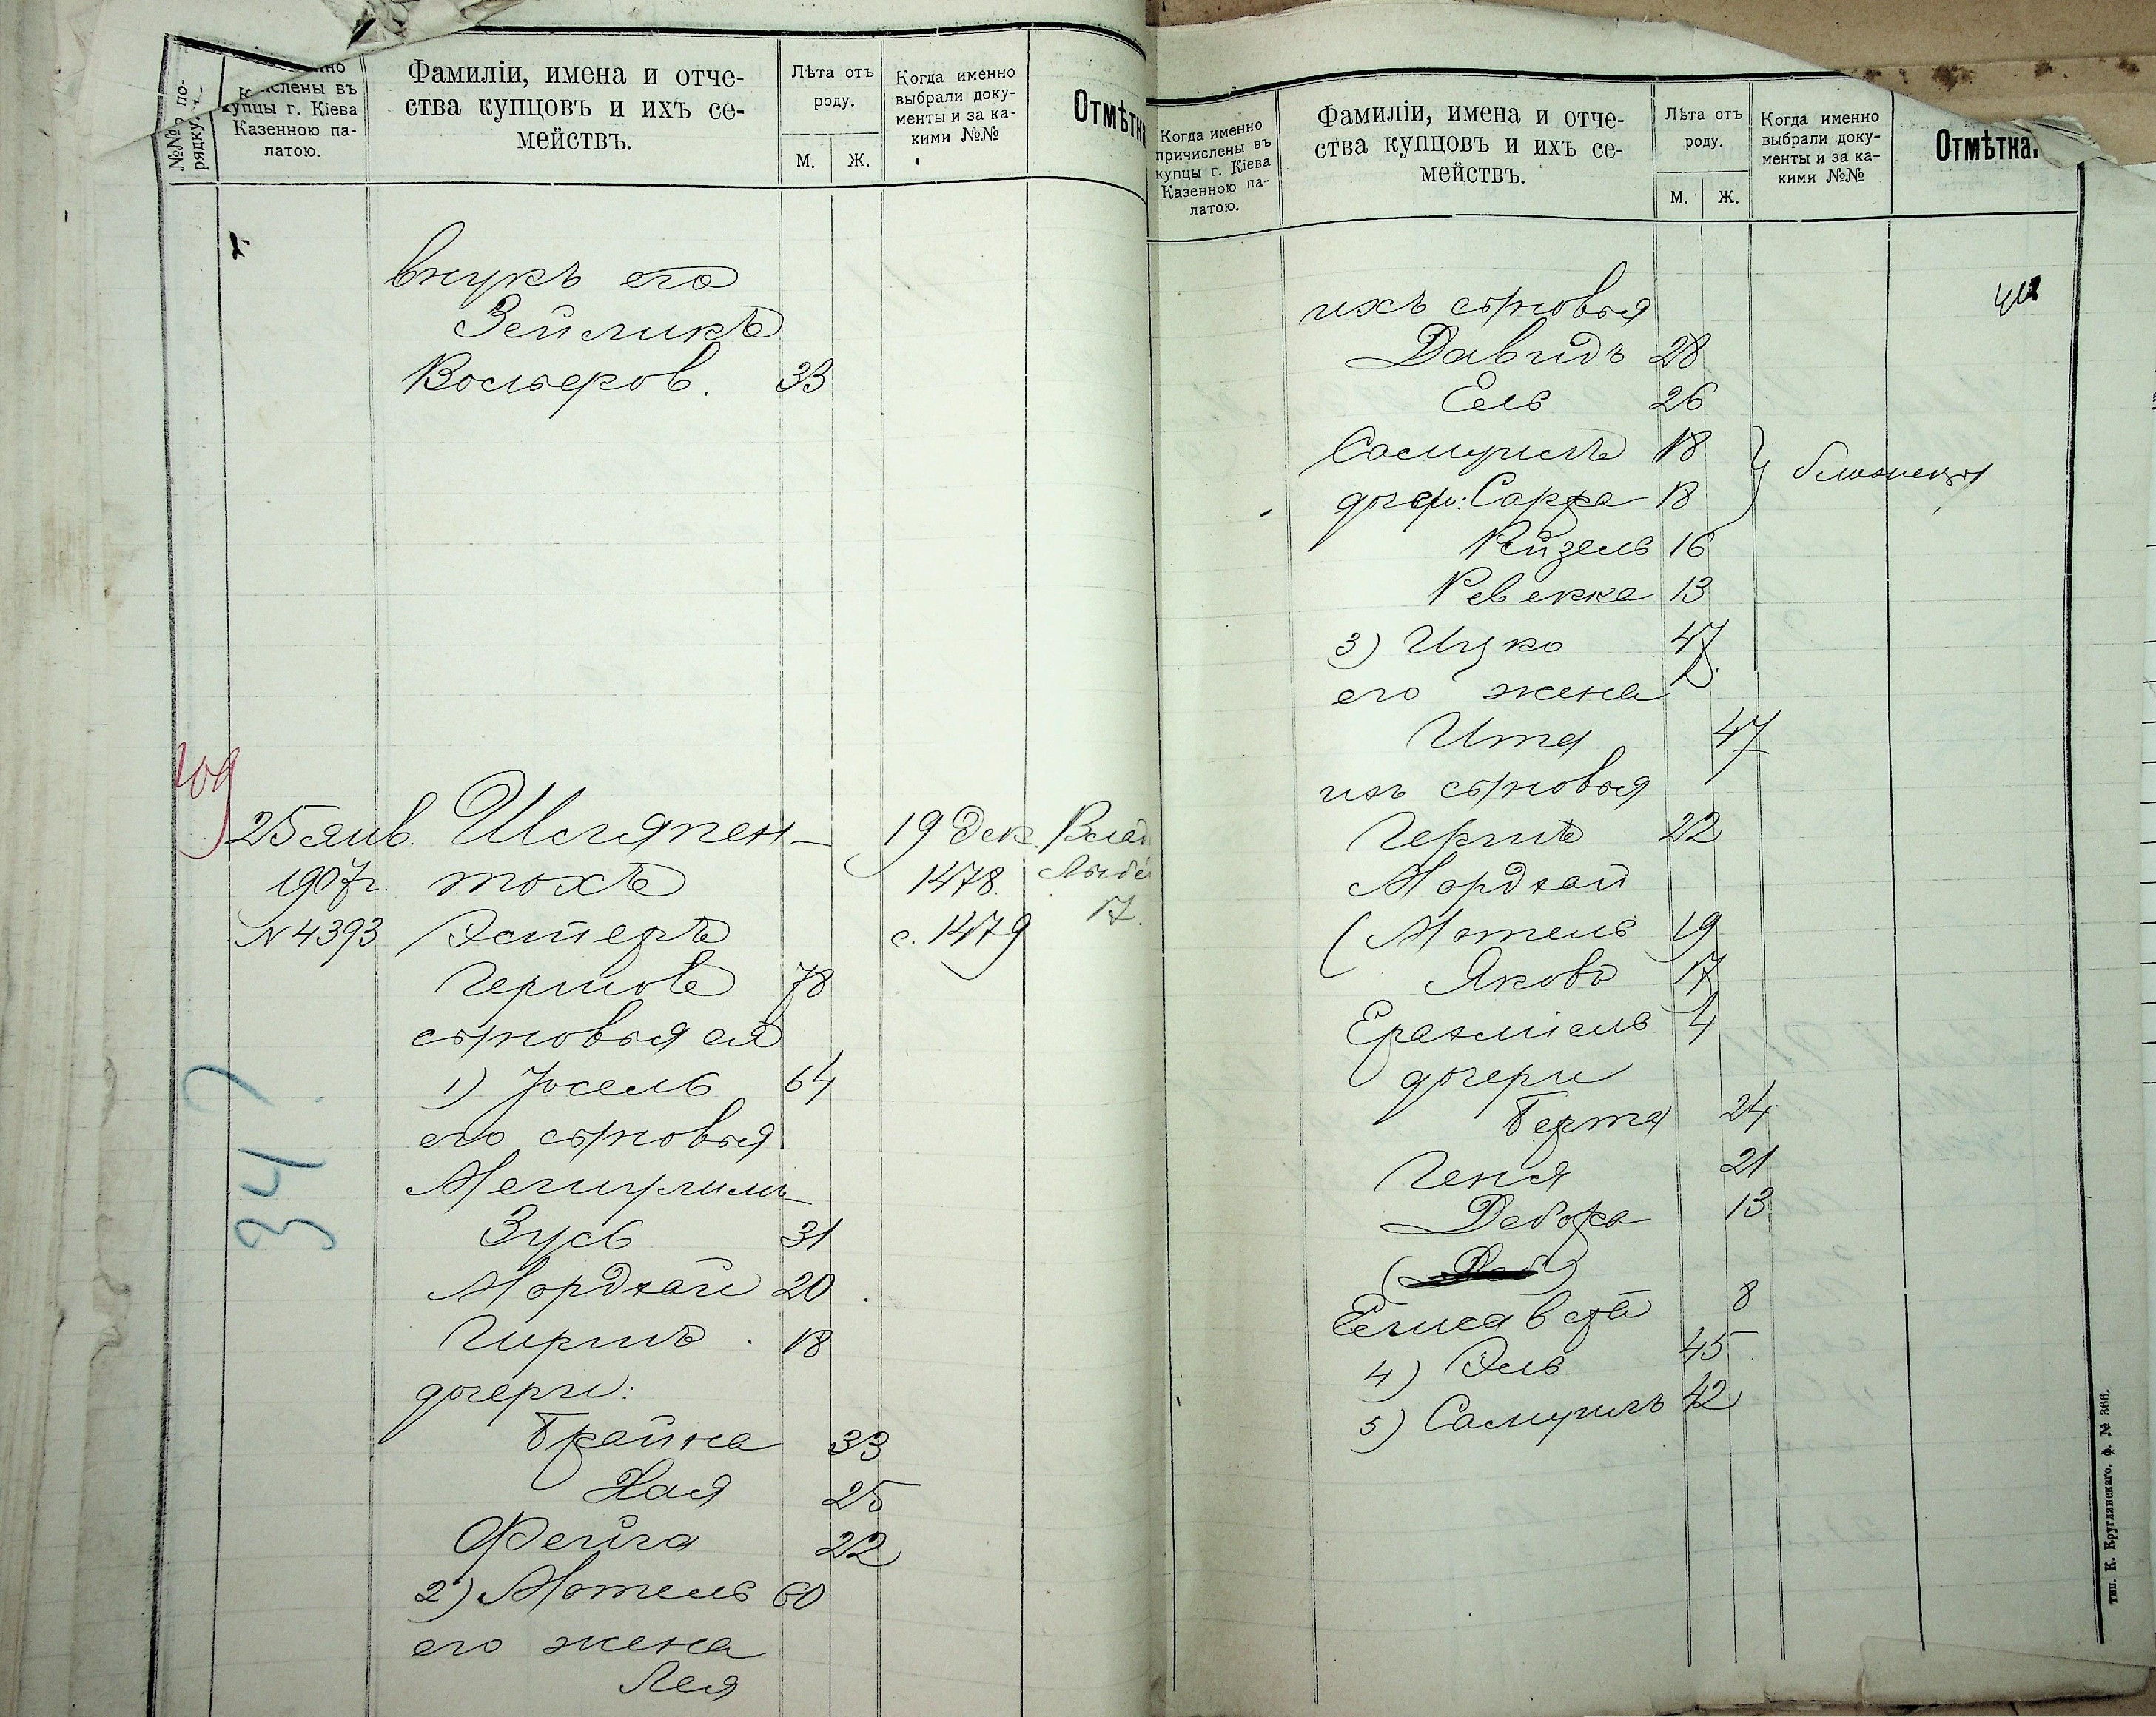 №№ по по-
рядку.
Казенною па-
латою.
купцы г. Кіева
Фамиліи, имена и отче-
ства купцовъ и ихъ се-
мействъ.
Лѣта отъ
роду.
М. Ж.
Когда именно
выбрали доку-
менты и за ка-
кими №№
Отмѣтка
внукъ его
Зейликъ
Вольфов. 33
109
25 янв. Шляпен- 19 дек. Влад
1907 г. тохъ 1478. Лыбе
N 4393 Эстеръ с. 1479 17.
Гершов 78
сыновья ея
1) Іосель 64
его сыновья
Мешулимъ-
Зусь 31
Мордхай 20
Гиршъ 18
дочери:
Брайна 33
Хая 25
Фейга 22
2) Мотель 60
его жена
Лея
34
Когда именно
причислены въ
купцы г. Кіева
Казенною па-
латою.
Фамиліи, имена и отче-
ства купцовъ и ихъ се-
мействъ.
Лѣта отъ
роду.
М. Ж.
Когда именно
выбрали доку-
менты и за ка-
кими №№
Отмѣтка.
ихъ сыновья
Давидъ 28
Ель 26
Самуилъ 18
дочери: Сарра 18 близнецы
Рейзель 16
Ревекка 13
3) Ицко 47
его жена
Ита 47
ихъ сыновья
Гершъ 22
Мордхай
(Мотель 19
Яковъ 17
Ерахміель 4
дочери
Берта 24
Геня 21
Дебора 13
Елисавета 8
4) Эль 45
5) Самуилъ 42
тип. К. Круглянскаго. ф. № 366.